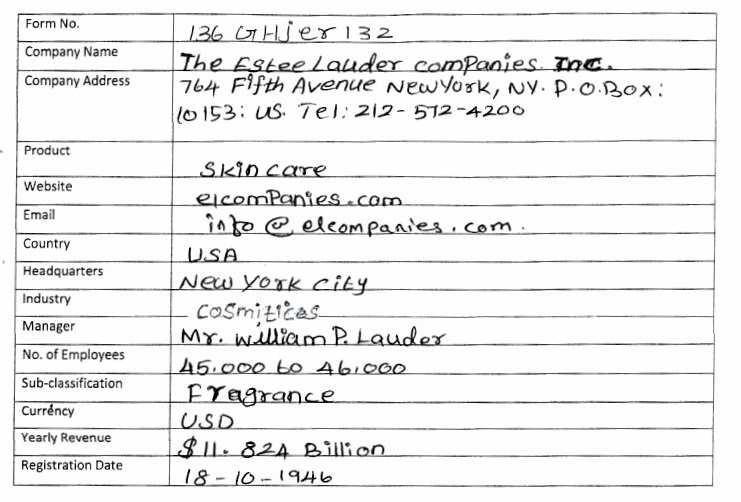 Form No. 136 GHjer132
Company Name The Estee Lauder companies Inc.
Company Address 764 Fifth Avenue New York, NY. P.O.Box:
10153: US. Tel: 212-572-4200
Product Skin care
Website elcomPanies.com
Email info@elcompanies.com.
Country USA
Headquarters New York city
Industry cosmitices
Manager Mr. William P. Lauder
No. of Employees 45.000 to 46,000
Sub-classification Fragrance
Currency USD
Yearly Revenue $11.824 Billion
Registration Date 18-10-1946